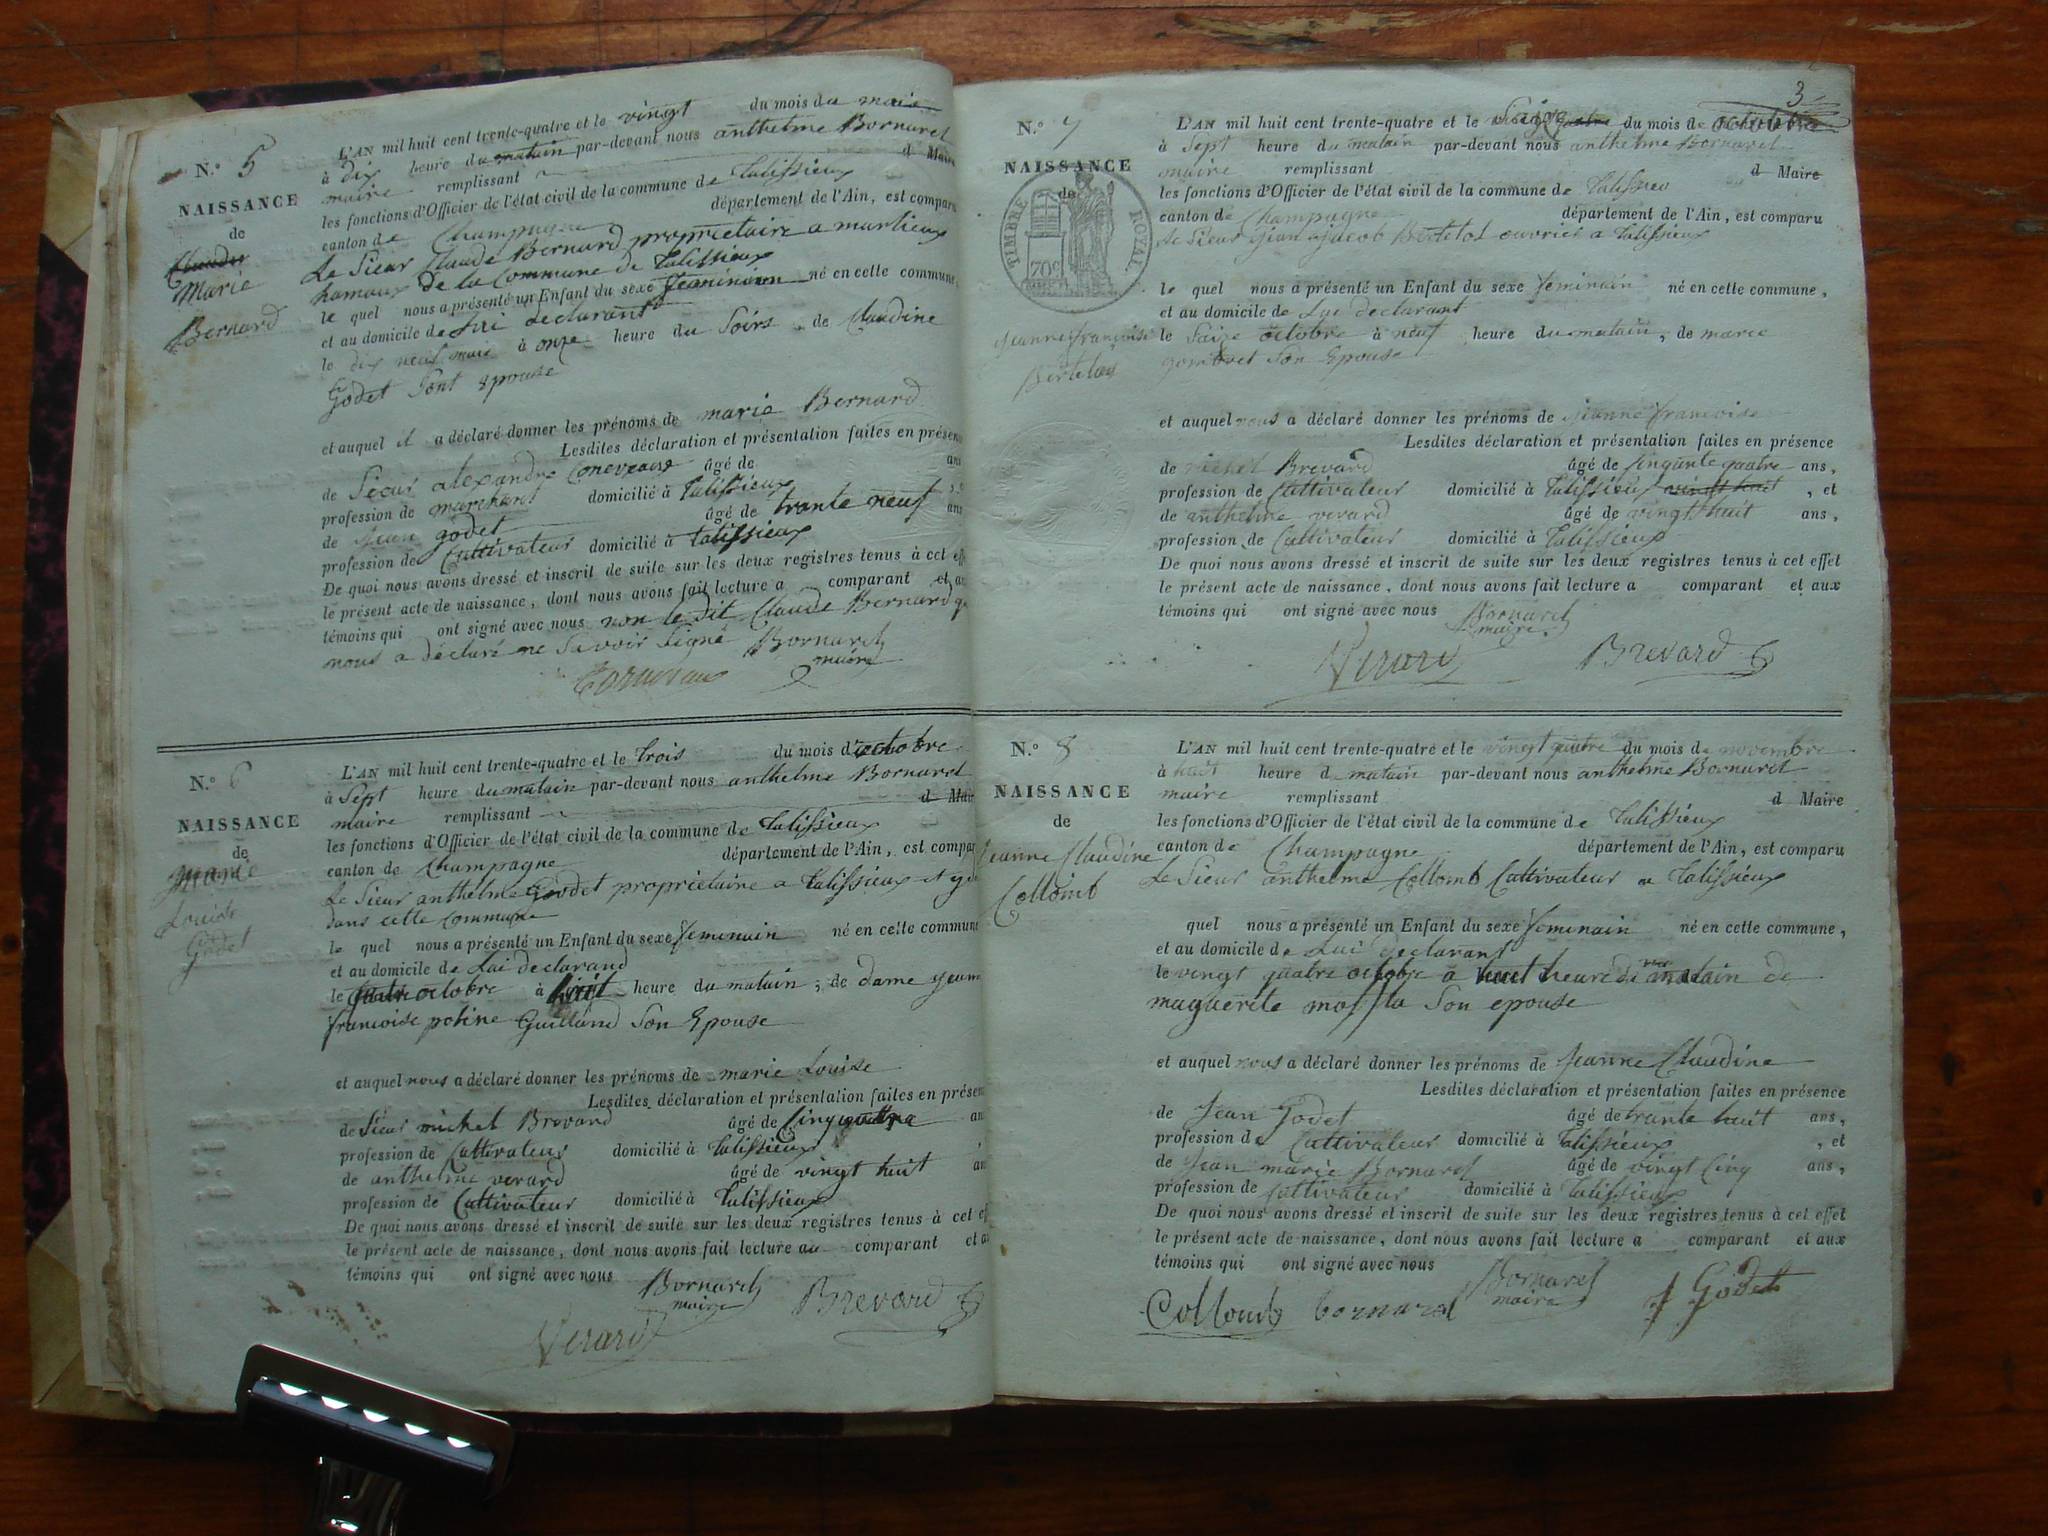 N.° 5
NAISSANCE
de
Claudine
Marie
Bernard
L'AN mil huit cent trente-quatre et le vingt du mois du mais
à dix heure du matain par-devant nous anthelme Bornarel
maire remplissant d Maire
les fonctions d'Officier de l'état civil de la commune de Talissieux
canton de Champagne département de l'Ain, est comparu
Le Sieur Claude Bernard propriétaire a marlieux
hamaux de la Commune de Talissieux
le quel nous a présenté un Enfant du sexe feminien né en cette commune,
et au domicile de Lui declarant
le dix neuf mais à onze heure du Soirs de Claudine
Godet Sont epouse
et auquel il a déclaré donner les prénoms de marie Bernard
Lesdites déclaration et présentation faites en présen
de Sieur alexandre âgé de ans
profession de marchant domicilié à Talissieux
de Jean godet âgé de trante neuf ans
profession de Cultivateur domicilié à Talissieux
De quoi nous avons dressé et inscrit de suite sur les deux registres tenus à cet eff
le présent acte de naissance, dont nous avons fait lecture a comparant et au
témoins qui ont signé avec nous non le dit Claude Bernard q
nous a déclaré ne Savoir Signé Bornarel
maire
N.° 6
NAISSANCE
de
Marie
Louise
Godet
L'AN mil huit cent trente-quatre et le trois du mois d'octobre
à Sept heure du matain par-devant nous anthelme Bornarel
maire remplissant d Mair
les fonctions d'Officier de l'état civil de la commune de Talissieux
canton de Champagne département de l'Ain, est compar
Le Sieur anthelme Godet propriétaire a Talissieux et
dans cette commune
le quel nous a présenté un Enfant du sexe feminain né en cette commune
et au domicile de Lui declarand
le octobre à huit heure du matain; de dame
francoise Guilland Son Epouse
et auquel nous a déclaré donner les prénoms de marie Louise
Lesdites déclaration et présentation faites en présen
de Sieur michel Brevard âgé de an
profession de Cultivateur domicilié à Talissieux
de anthelme verard âgé de vingt huit an
profession de Cultivateur domicilié à Talissieux
De quoi nous avons dressé et inscrit de suite sur les deux registres tenus à cet ef
le présent acte de naissance, dont nous avons fait lecture au comparant et au
témoins qui ont signé avec nous Bornarel
maire
Brevard
Verard
3
N.° 7
NAISSANCE
de
TIMBRE ROYAL
70c
Jeanne françoise
Bertelot
L'AN mil huit cent trente-quatre et le Seize quatre du mois de octobre
à Sept heure du matain par-devant nous anthelme Bornarel
maire remplissant d Maire
les fonctions d'Officier de l'état civil de la commune de Talissieu
canton de Champagne département de l'Ain, est comparu
le Sieur Jean jacob Bertelot ouvrier a Talissieux
le quel nous a présenté un Enfant du sexe feminain né en cette commune,
et au domicile de Lui declarant
le Saize octobre à neuf heure du matain, de marie
Son Epouse
et auquel nous a déclaré donner les prénoms de jeanne francoise
Lesdites déclaration et présentation faites en présence
de michel Brevard âgé de sinquante quatre ans,
profession de Cultivateur domicilié à Talissieux vingt huit , et
de anthelme verard âgé de vingt huit ans,
profession de Cultivateur domicilié à Talissieux
De quoi nous avons dressé et inscrit de suite sur les deux registres tenus à cet effet
le présent acte de naissance, dont nous avons fait lecture a comparant et aux
témoins qui ont signé avec nous Bornarel
maire
Verard Brevard
N.° 8
NAISSANCE
de
Jeanne Claudine
Collomb
L'AN mil huit cent trente-quatre et le vingt quatre du mois de novembre
à huit heure d matain par-devant nous anthelme Bornarel
maire remplissant d Maire
les fonctions d'Officier de l'état civil de la commune de Talissieux
canton de Champagne département de l'Ain, est comparu
Le Sieur anthelme Collomb Cultivateur a Talissieux
quel nous a présenté un Enfant du sexe feminain né en cette commune,
et au domicile de Lui declarant
le vingt quatre octobre a huit heure di matain de
maguerite Son epouse
et auquel nous a déclaré donner les prénoms de Jeanne Claudine
Lesdites déclaration et présentation faites en présence
de Jean Godet âgé de trante huit ans,
profession de Cultivateur domicilié à Talissieux , et
de Jean marie Bornarel âgé de vingt Cinq ans,
profession de Cultivateur domicilié à Talissieux
De quoi nous avons dressé et inscrit de suite sur les deux registres tenus à cet effet
le présent acte de naissance, dont nous avons fait lecture a comparant et aux
témoins qui ont signé avec nous Bornarel
maire
Collomb bornarel J Godet